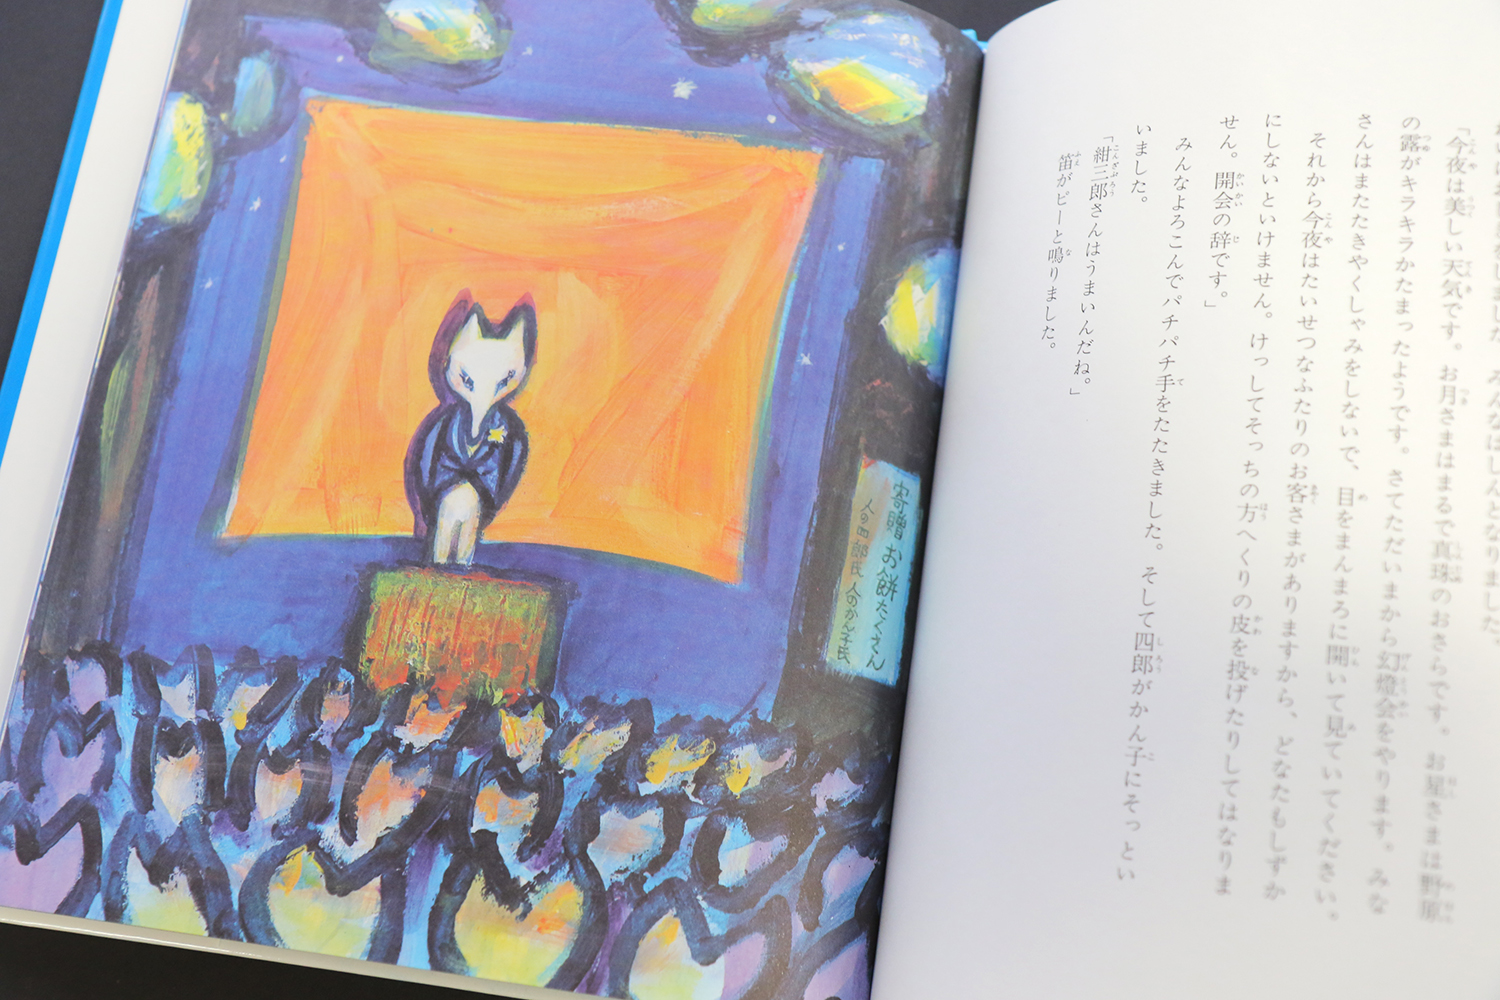 をしました。みんなはしんとなりました。
「今夜は美しい天気です。お月さまはまるで真珠のおさらです。お星さまは野原
の露がキラキラかたまったようです。さてただいまから幻燈会をやります。みな
さんはまたたきやくしゃみをしないで、目をまんまろに開いて見ていてください。
それから今夜はたいせつなふたりのお客さまがありますから、どなたもしずか
にしないといけません。けっしてそっちの方へくりの皮を投げたりしてはなりま
せん。開会の辞です。」
みんなよろこんでパチパチ手をたたきました。そして四郎がかん子にそっとい
いました。
「紺三郎さんはうまいんだね。」
笛がピーと鳴りました。
寄贈 お餅たくさん
人の四郎氏 人のかん子氏